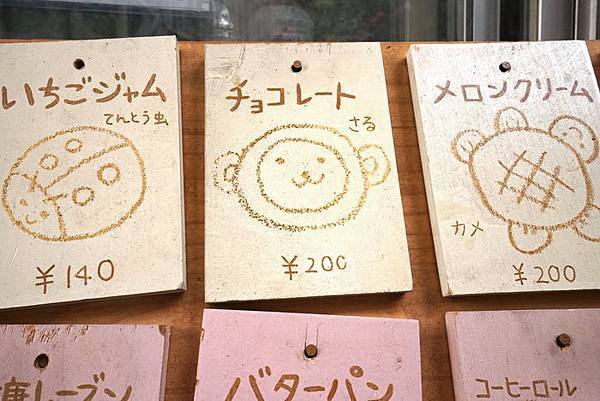 いちごジャム
てんとう虫
¥140
チョコレート
さる
¥200
メロンクリーム
カメ
¥200
レーズン
バターパン
コーヒーロール